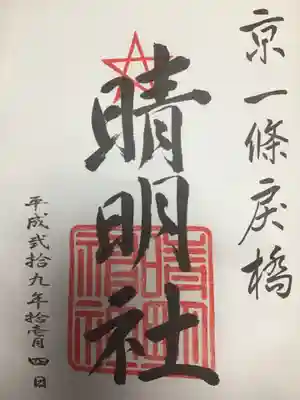 京一條戻橋
晴明社
平成弐拾九年拾壱月四日